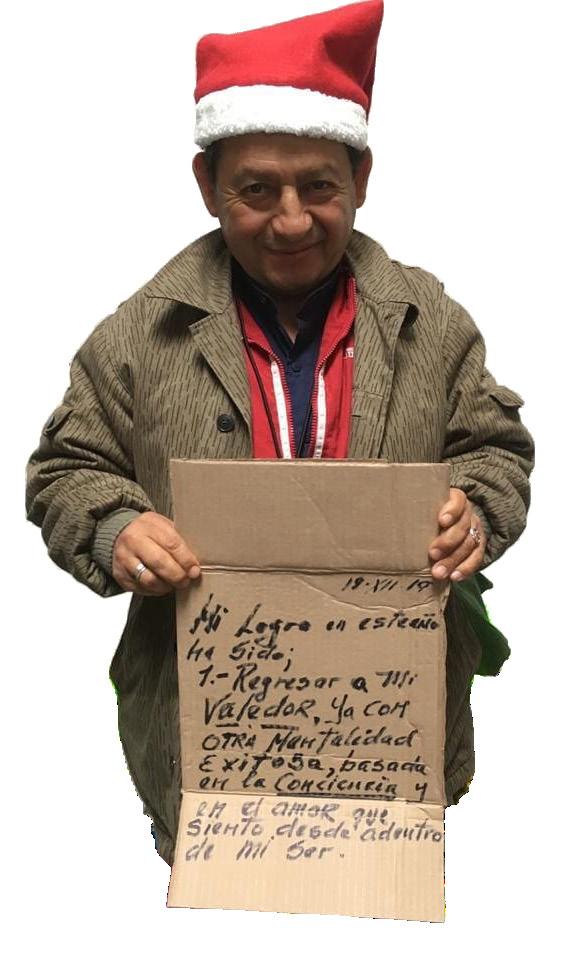 18-XII-19
Mi Logro en este año
ha sido;
1.- Regresar a Mi
ValedoR, Ya con
OTRA Mentalidad
Exitosa, basada
en la Conciencia y
en el amor que
siento desde adentro
de mi Ser.